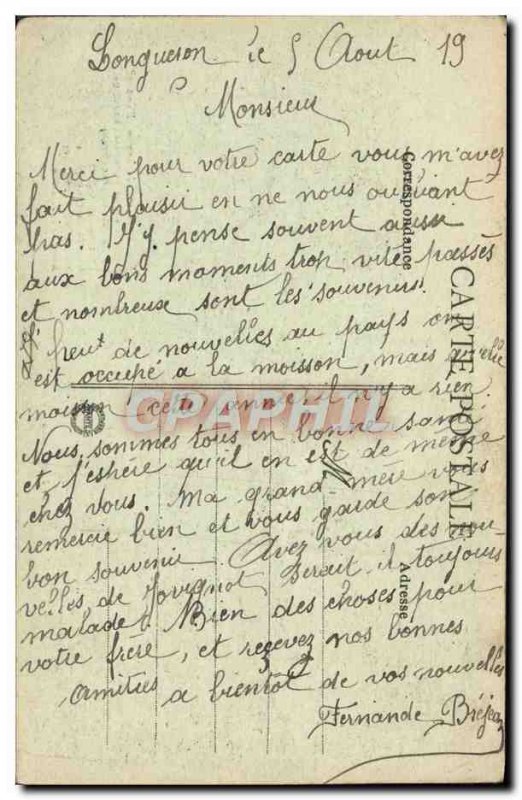 le 5 Aout 19
Monsieur
Merci pour votre carte vous m'avez
fait plaisir en ne nous oubliant
pas. J'y pense souvent aussi
aux bons moments trop vite passés
et nombreux sont les souvenirs.
peut de nouvelles au pays on
est occupé a la moisson, mais quelle
moisson cette année il n'y a rien.
Nous sommes tous en bonne santé
et j'espère qu'il en est de même
chez vous. Ma grand mère vous
remercie bien et vous garde son
bon souvenir. Avez vous des nou-
velles de Jovignot serait il toujours
malade. Bien des choses pour
votre frère, et recevez nos bonnes
amitiés
a bientot de vos nouvelles
Fernande
CARTE POSTALE
Correspondance
Adresse
CPAPHIL